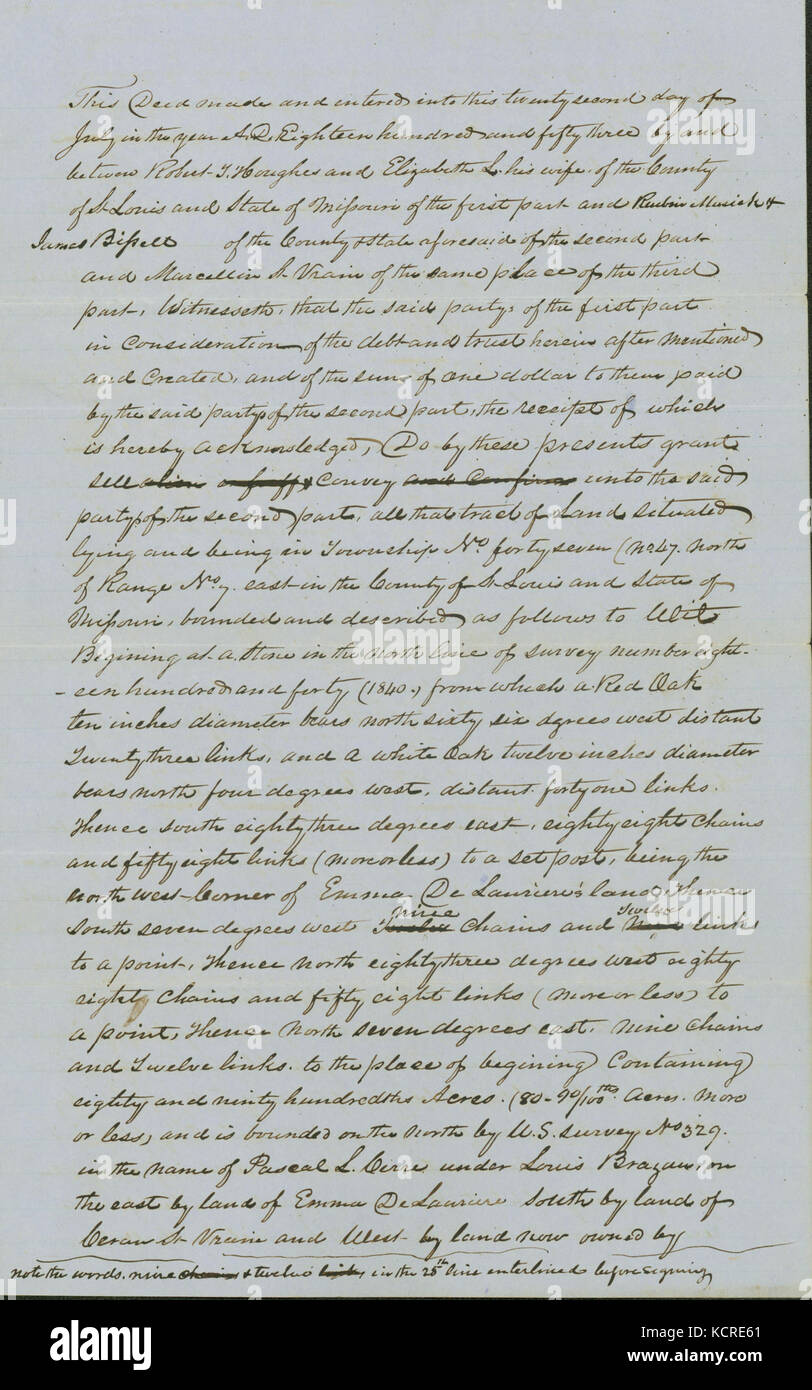 This Deed made and entered into this twenty second day of
July in the year A.D. Eighteen hundred and fifty three by and
between Robert T. Houghes and Elizabeth L. his wife of the County
of St Louis and State of Missouri of the first part and Reubin Musick &
James Bissell of the County & State aforesaid of the second part
and Marcellin St Vrain of the same place of the third
part, Witnesseth, that the said partys of the first part
in consideration of the debt and trust herein after mentioned
and Created, and of the sum of one dollar to them paid
by the said partys of the second part, the receipt of which
is hereby acknowledged, Do by these presents grant
sell alien enfeoff & Convey and Confirm unto the said
partys of the second part, all that tract of Land situated
lying and being in Township No. forty seven (No 47. North
of Range No 7. east in the County of St Louis and State of
Missouri, bounded and described as follows to Wit
Begining at a Stone in the North line of survey number eight-
-een hundred and forty (1840,) from which a Red Oak
ten inches diameter bears north sixty six dgrees west distant
Twenty three links, and a white Oak twelve inches diameter
bears north four degrees west, distant forty one links.
Thence south eighty three degrees east, eighty eight Chains
and fifty eight links (more or less) to a set post, being the
north west Corner of Emma De Lauriere's land, Thence
nine Twelve
South seven degrees west Twelve Chains and Nine links
to a point, Thence north eighty three degrees west eighty
eight Chains and fifty eight links (more or less) to
a point, Thence North seven degrees east, nine Chains
and Twelve links. to the place of begining Containing
eighty and ninty hundredths Acres. (80-90/100ths Acres. More
or less, and is bounded on the North by U.S. survey No 329.
in the name of Pascal L. Cerre under Louis Brazau, on
the east by land of Emma De Lauriere South by land of
Ceran St Vrain and West by land now owned by
note the words. nine chains & twelve links in the 25th line enterlined before signing
alamy
alamy
Image ID: KCRE61
www.alamy.com